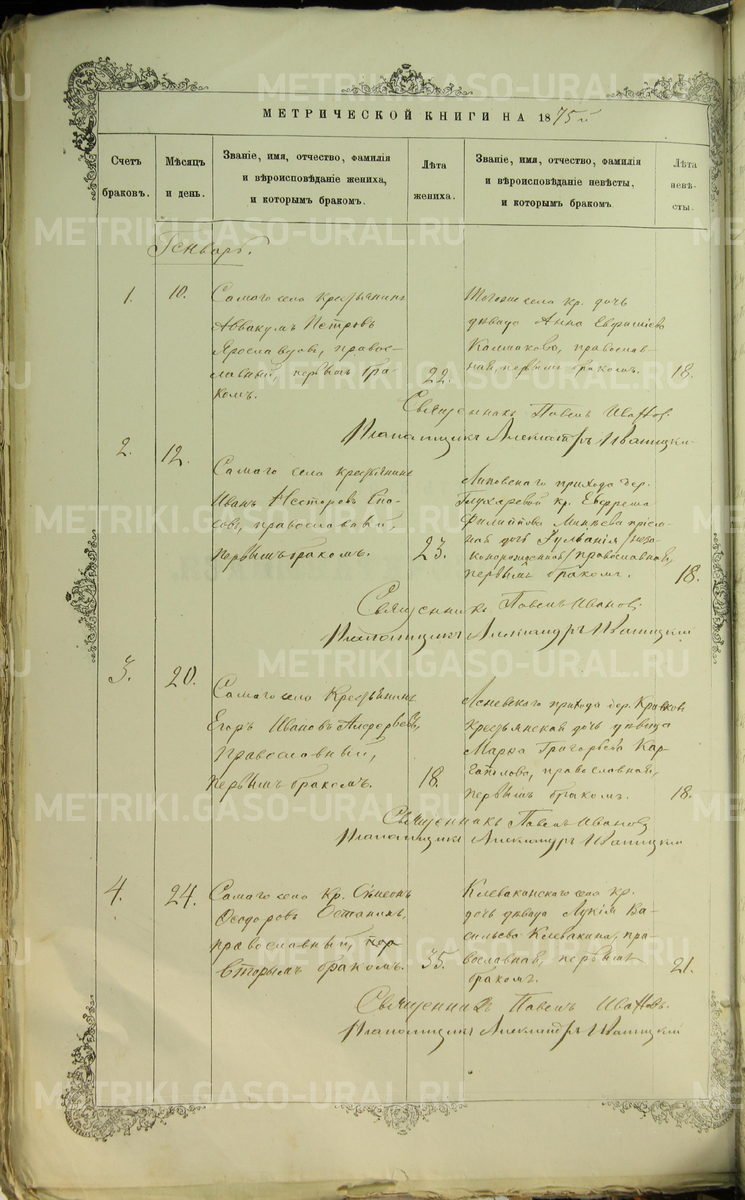 МЕТРИЧЕСКОЙ КНИГИ НА 1875й
Счетъ браковъ.
Мѣсяцъ и день.
Званіе, имя, отчество, фамилія
и вѣроисповѣданіе жениха,
и которымъ бракомъ.
Лѣта жениха.
Званіе, имя, отчество, фамилія
и вѣроисповѣданіе невѣсты,
и которымъ бракомъ.
Лѣта невѣсты.
Генварь.
1.
10.
Самаго села крестьянинъ
Аввакумъ Петровъ
Ярославцовъ, правос-
лавный, первымъ бра-
комъ.
22.
Тогоже села кр. дочь
дѣвица Анна
православ-
ная, первымъ бракомъ.
18.
Священникъ Павелъ Ивановъ.
Александръ
2.
12.
Самаго села крестьянинъ
Иванъ Несторовъ
православный,
первымъ бракомъ.
23.
Липовскаго прихода дер.
Глухаревой кр. Ефрема
Филиппова Минѣева
дочь /неза-
коннорожденная/ православная,
первымъ бракомъ.
18.
Священникъ Павелъ Ивановъ.
Александръ
3.
20.
Самаго села Крестьянинъ
Егоръ Ивановъ
Православный,
первымъ бракомъ.
18.
прихода дер.
крестьянская дочь дѣвица
Марѳа Григорьева Кар-
гаполова, православная,
первымъ бракомъ.
18.
Священникъ Павелъ Ивановъ
Александръ
4.
24.
Самаго села Кр. Симеонъ
Ѳеодоровъ Останинъ,
православный, пер
вторымъ бракомъ.
35.
Клевакинскаго села кр.
дочь дѣвица Лукія Ва-
сильева Клевакина, пра-
вославная, первымъ
бракомъ.
21.
Священникъ Павелъ Ивановъ.
Александръ
METRIKI.GASO-URAL.RU